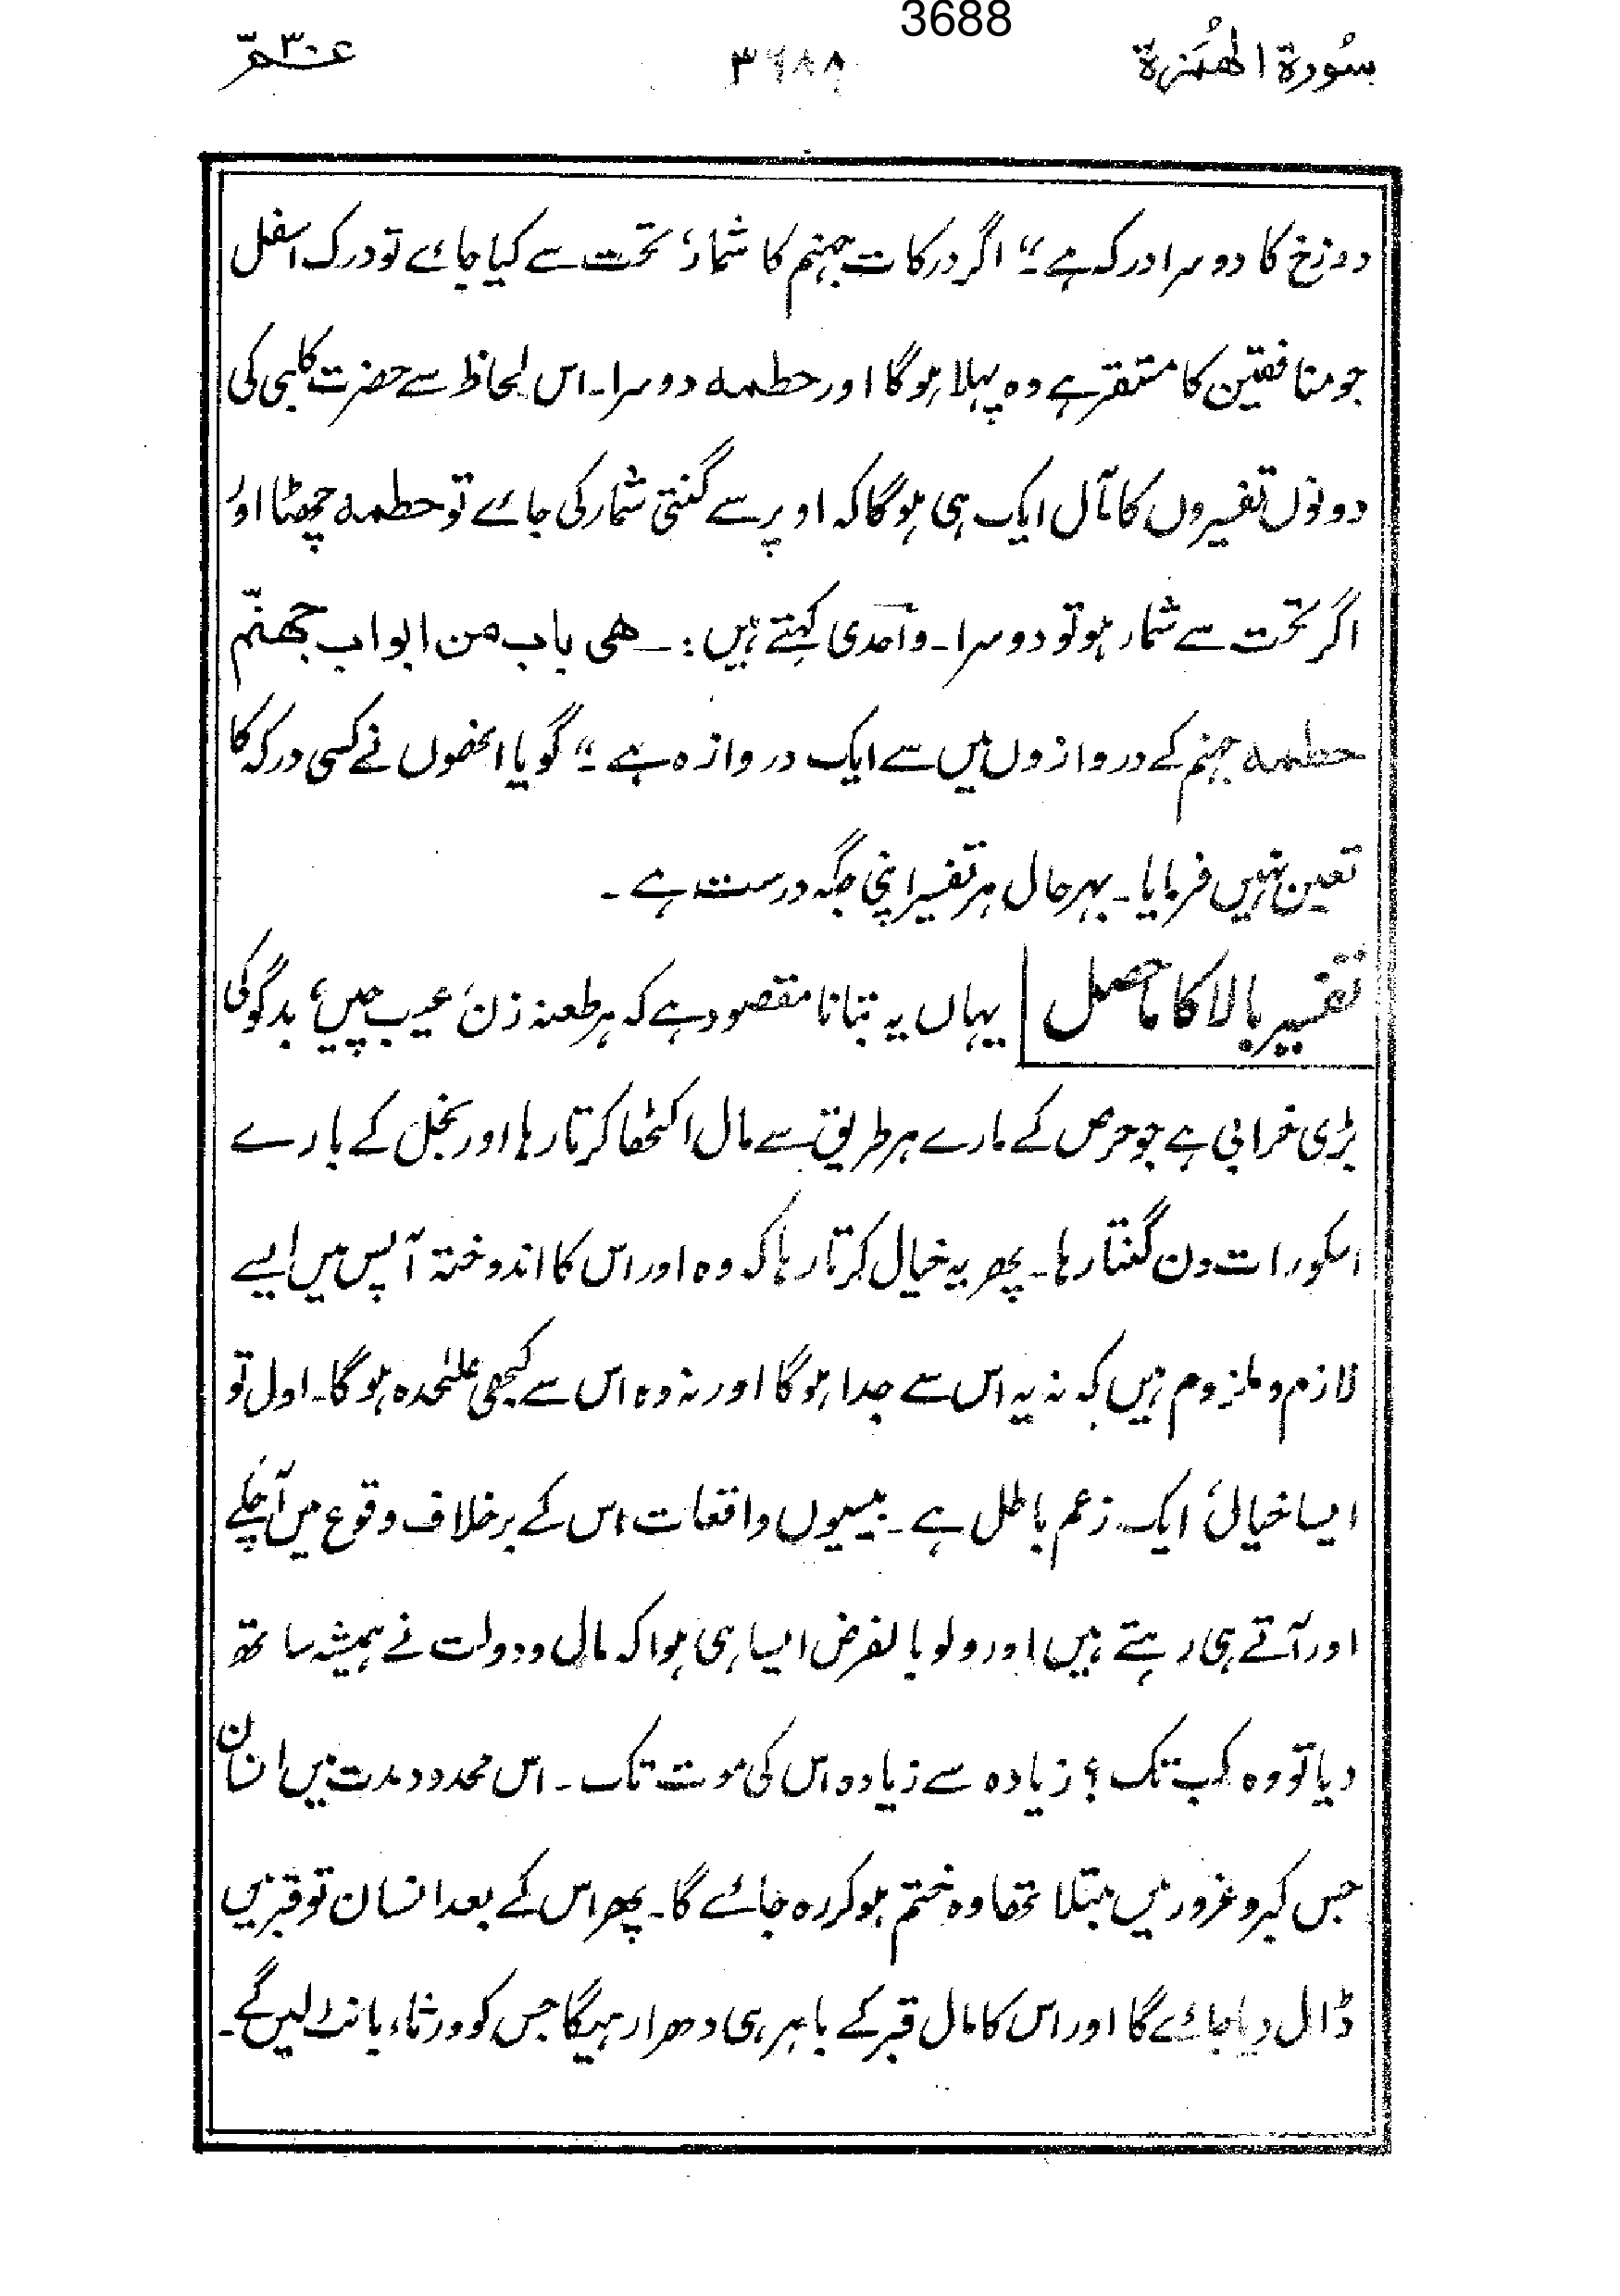 3688
سُورة الهُمَزة ۳۶۸۸ عـــم ۳۰
دوزخ کا دوسرا درکہ ہے۔" اگر درکات جہنم کا شمار، تحت سے کیا جائے تو درک اسفل
جو منافقین کا مستقر ہے وہ پہلا ہوگا اور حطمہ دوسرا۔ اس لحاظ سے حضرت کلبی کی
دونوں تفسیروں کا مآل ایک ہی ہوگا کہ اوپر سے گنتی شمار کی جائے تو حطمہ چھٹا اور
اگر تحت سے شمار ہو تو دوسرا۔ واحدی کہتے ہیں :۔ ھی باب من ابواب جھنّم
حطمہ جہنم کے دروازوں میں سے ایک دروازہ ہے۔" گویا انھوں نے کسی درکہ کا
تعین نہیں فرمایا۔ بہرحال ہر تفسیر اپنی جگہ درست ہے۔
تفسیر بالا کا ماحصل یہاں یہ بتانا مقصود ہے کہ ہر طعنہ زن، عیب چیں، بدگو کی
بڑی خرابی ہے جو حرص کے مارے ہر طریق سے مال اکٹھا کرتا رہا اور بخل کے بارے
اسکو رات دن گنتا رہا۔ پھر یہ خیال کرتا رہا کہ وہ اور اس کا اندوختہ آپس میں ایسے
لازم و ملزوم ہیں کہ نہ یہ اس سے جدا ہوگا اور نہ وہ اس سے کبھی علیٰحدہ ہوگا۔ اول تو
ایسا خیال، ایک زعم باطل ہے۔ بیسیوں واقعات اس کے برخلاف وقوع میں آچکے
اور آتے ہی رہتے ہیں اور ولو بالفرض ایسا ہی ہوا کہ مال و دولت نے ہمیشہ ساتھ
دیا تو وہ کب تک ؟ زیادہ سے زیادہ اس کی موت تک۔ اس محدود مدت میں انسان
جس کبر و غرور میں مبتلا تھا وہ ختم ہو کر رہ جائے گا۔ پھر اس کے بعد انسان تو قبر میں
ڈال دیا جائے گا اور اس کا مال قبر کے باہر ہی دھرا رہیگا جس کو ورثاء بانٹ لیں گے۔